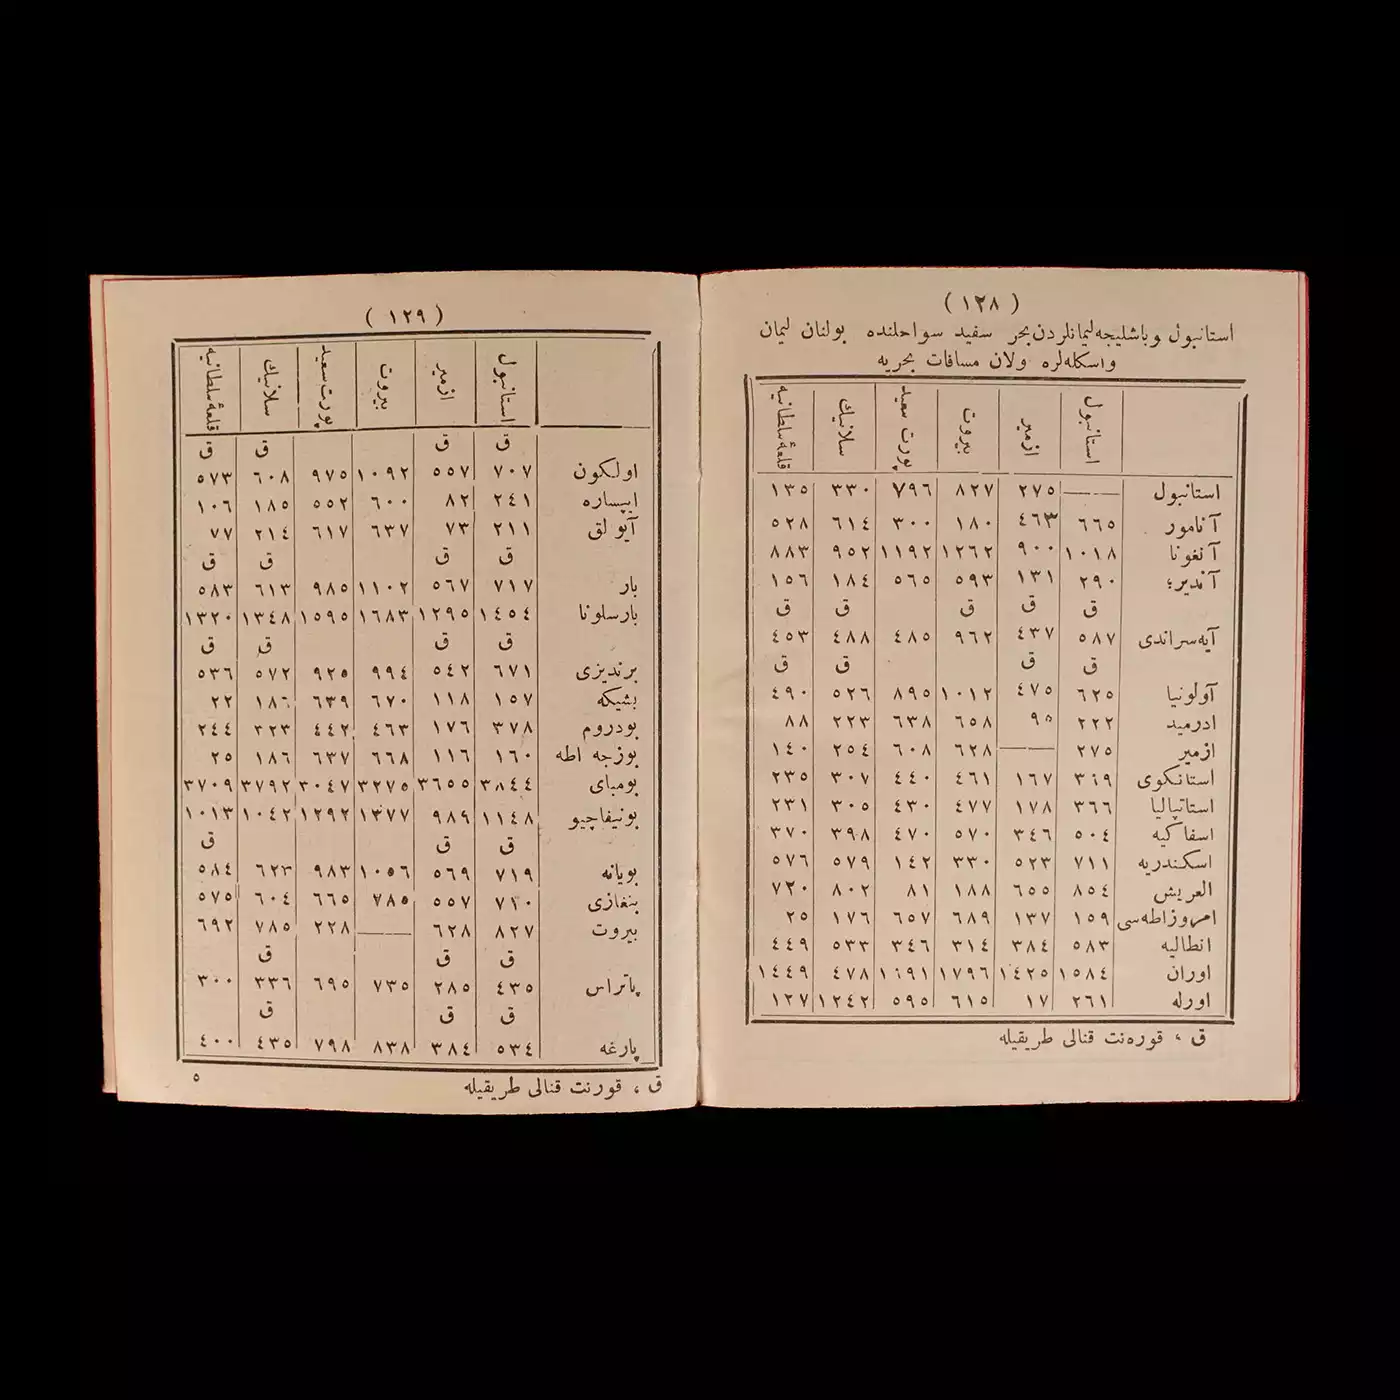 ( ١٢٨ )
استانبول وباشليجه ليمانلردن بحر سفيد سواحلنده بولنان ليمان
واسكله لره ولان مسافات بحريه
استانبول ازمير بيروت پورت سعيد سلانيك قلعهٔ سلطانيه
استانبول —— ٢٧٥ ٨٢٧ ٧٩٦ ٣٣٠ ١٣٥
آنامور ٦٦٥ ٤٦٣ ١٨٠ ٣٠٠ ٦١٤ ٥٢٨
آنغونا ١٠١٨ ٩٠٠ ١٢٦٢ ١١٩٢ ٩٥٢ ٨٨٣
٢٩٠ ١٣١ ٥٩٣ ٥٦٥ ١٨٤ ١٥٦
ق ق ق ق ق
آيه سراندى ٥٨٧ ٤٣٧ ٩٦٢ ٤٨٥ ٤٨٨ ٤٥٣
ق ق ق ق
آولونيا ٦٢٥ ٤٧٥ ١٠١٢ ٨٩٥ ٥٢٦ ٤٩٠
ادرميد ٢٢٢ ٩٥ ٦٥٨ ٦٣٨ ٢٢٣ ٨٨
ازمير ٢٧٥ —— ٦٢٨ ٦٠٨ ٢٥٤ ١٤٠
استانكوى ٣٦٩ ١٦٧ ٤٦١ ٤٤٠ ٣٠٧ ٢٣٥
استاتپاليا ٣٦٦ ١٧٨ ٤٧٧ ٤٣٠ ٣٠٥ ٢٣١
اسفاكيه ٥٠٤ ٣٤٦ ٥٧٠ ٤٧٠ ٣٩٨ ٣٧٠
اسكندريه ٧١١ ٥٢٣ ٣٣٠ ١٤٢ ٥٧٩ ٥٧٦
العريش ٨٥٤ ٦٥٥ ١٨٨ ٨١ ٨٠٢ ٧٢٠
امروز اطه سى ١٥٩ ١٣٧ ٦٨٩ ٦٥٧ ١٧٦ ٢٥
انطاليه ٥٨٣ ٣٨٤ ٣١٤ ٣٤٦ ٥٣٣ ٤٤٩
اوران ١٥٨٤ ١٤٢٥ ١٧٩٦ ١٦٩١ ٤٧٨ ١٤٤٩
اورله ٢٦١ ١٧ ٦١٥ ٥٩٥ ١٢٤٢ ١٢٧
ق ، قوره نت قنالى طريقيله
( ١٢٩ )
استانبول ازمير بيروت پورت سعيد سلانيك قلعهٔ سلطانيه
ق ق ق ق
اولكون ٧٠٧ ٥٥٧ ١٠٩٢ ٩٧٥ ٦٠٨ ٥٧٣
ايپساره ٢٤١ ٨٢ ٦٠٠ ٥٥٢ ١٨٥ ١٠٦
آيو لق ٢١١ ٧٣ ٦٣٧ ٦١٧ ٢١٤ ٧٧
ق ق ق ق
بار ٧١٧ ٥٦٧ ١١٠٢ ٩٨٥ ٦١٣ ٥٨٣
بارسلونا ١٤٥٤ ١٢٩٥ ١٦٨٣ ١٥٩٥ ١٣٤٨ ١٣٢٠
ق ق ق ق
برنديزى ٦٧١ ٥٤٢ ٩٩٤ ٩٢٥ ٥٧٢ ٥٣٦
بشيكه ١٥٧ ١١٨ ٦٧٠ ٦٣٩ ١٨٦ ٢٢
بودروم ٣٧٨ ١٧٦ ٤٦٣ ٤٤٢ ٣٢٣ ٢٤٤
بوزجه اطه ١٦٠ ١١٦ ٦٦٨ ٦٣٧ ١٨٦ ٢٥
بومباى ٣٨٤٤ ٣٦٥٥ ٣٢٧٥ ٣٠٤٧ ٣٧٩٢ ٣٧٠٩
بونيفاچيو ١١٤٨ ٩٨٩ ١٣٧٧ ١٢٩٢ ١٠٤٢ ١٠١٣
ق ق ق
بويانه ٧١٩ ٥٦٩ ١٠٥٦ ٩٨٣ ٦٢٣ ٥٨٤
بنغازى ٧٣٠ ٥٥٧ ٧٨٥ ٦٦٥ ٦٠٤ ٥٧٥
بيروت ٨٢٧ ٦٢٨ —— ٢٢٨ ٧٨٥ ٦٩٢
ق ق ق
پاتراس ٤٣٥ ٢٨٥ ٧٣٥ ٦٩٥ ٣٣٦ ٣٠٠
ق ق ق
پارغه ٥٣٤ ٣٨٤ ٨٣٨ ٧٩٨ ٤٣٥ ٤٠٠
ق ، قورنت قنالى طريقيله
٥